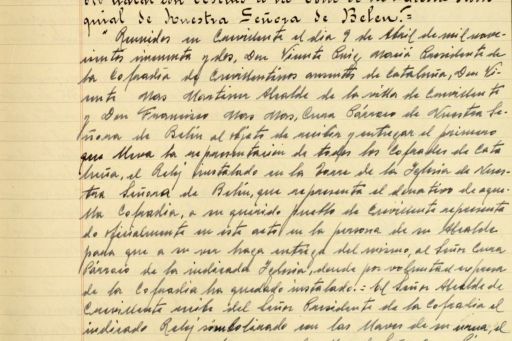 quial de Nuestra Señora de Belen.=
"Reunidos en Crevillente el día 9 de Abril de mil nove-
cientos cincuenta y dos, Don Vicente Puig Maciá Presidente de
la Cofradia de Crevillentinos ausentes de Cataluña, Don Vi-
cente Mas Martinez Alcalde de la villa de Crevillente
y Don Francisco Mas Mas, Cura Párroco de Nuestra Se-
ñora de Belén al objeto de recibir y entregar el primero
que lleva la representación de todos los Cofrades de Cata-
luña, el Reloj instalado en la Torre de la Iglesia de Nues-
tra Señora de Belén, que representa el donativo de aque-
lla Cofradia, a su querido pueblo de Crevillente representa
do oficialmente en este acto en la persona de su Alcalde
para que a su vez haga entrega del mismo, al Señor Cura
Párroco de la indicada Iglesia, donde por voluntad expresa
de la Cofradia ha quedado instalado.= El Señor Alcalde de
Crevillente recibe del Señor Presidente de la Cofradia el
indicado Reloj simbolizado en las llaves de su urna, el